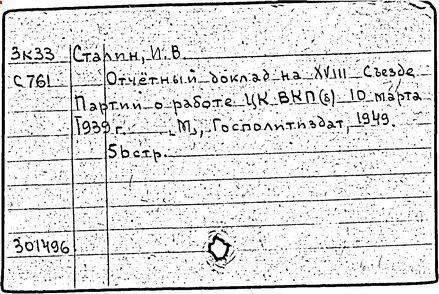 3К33 Сталин, И.В
С761 Отчётный доклад на XVIII Съезде
Партии о работе ЦК ВКП(б) 10 марта
1939 г. М., Госполитиздат, 1949.
56стр.
301496